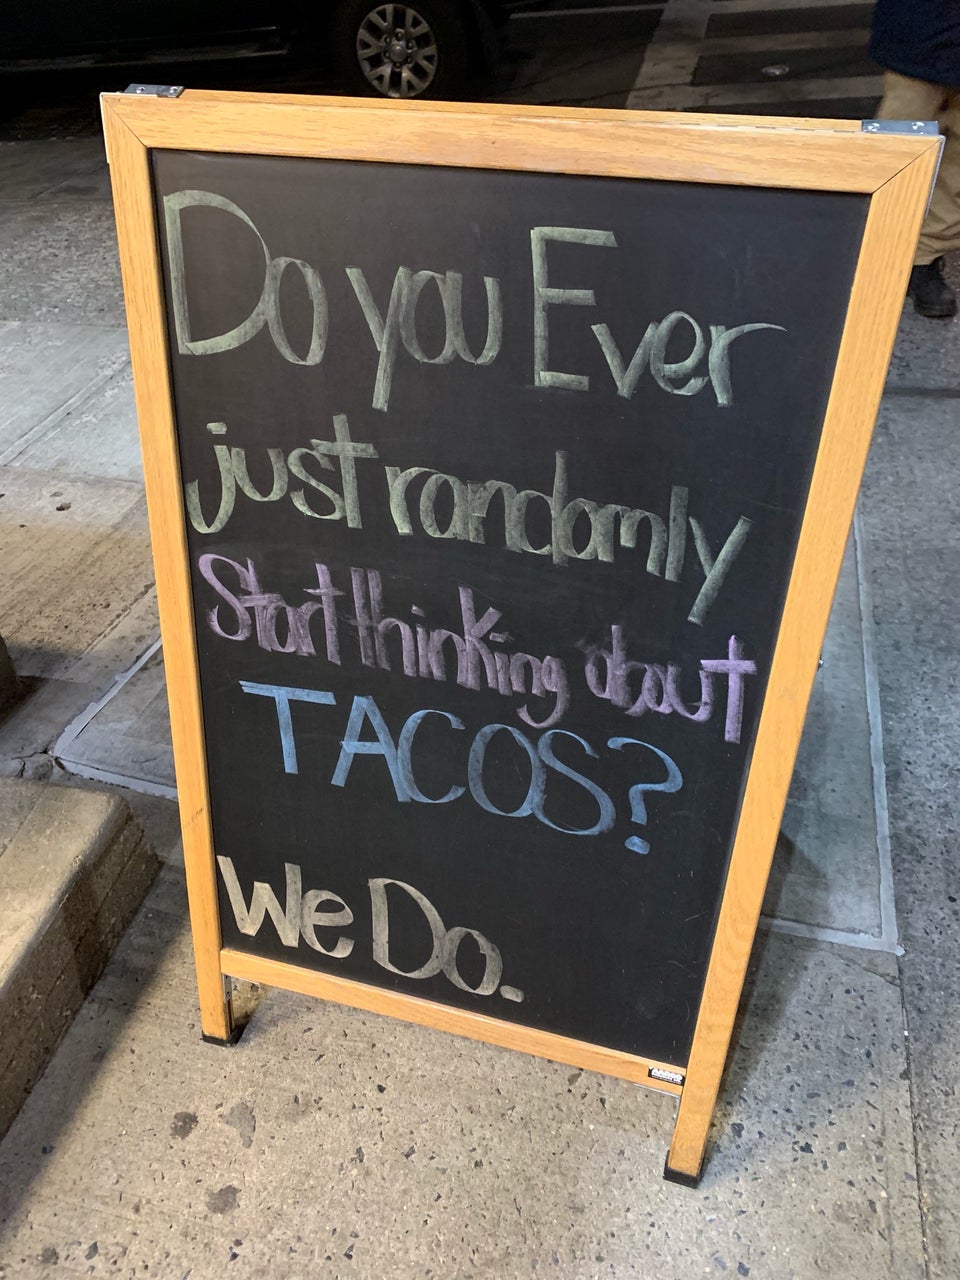 Do you Ever
just randomly
Start thinking about
TACOS?
We Do.
AARCO